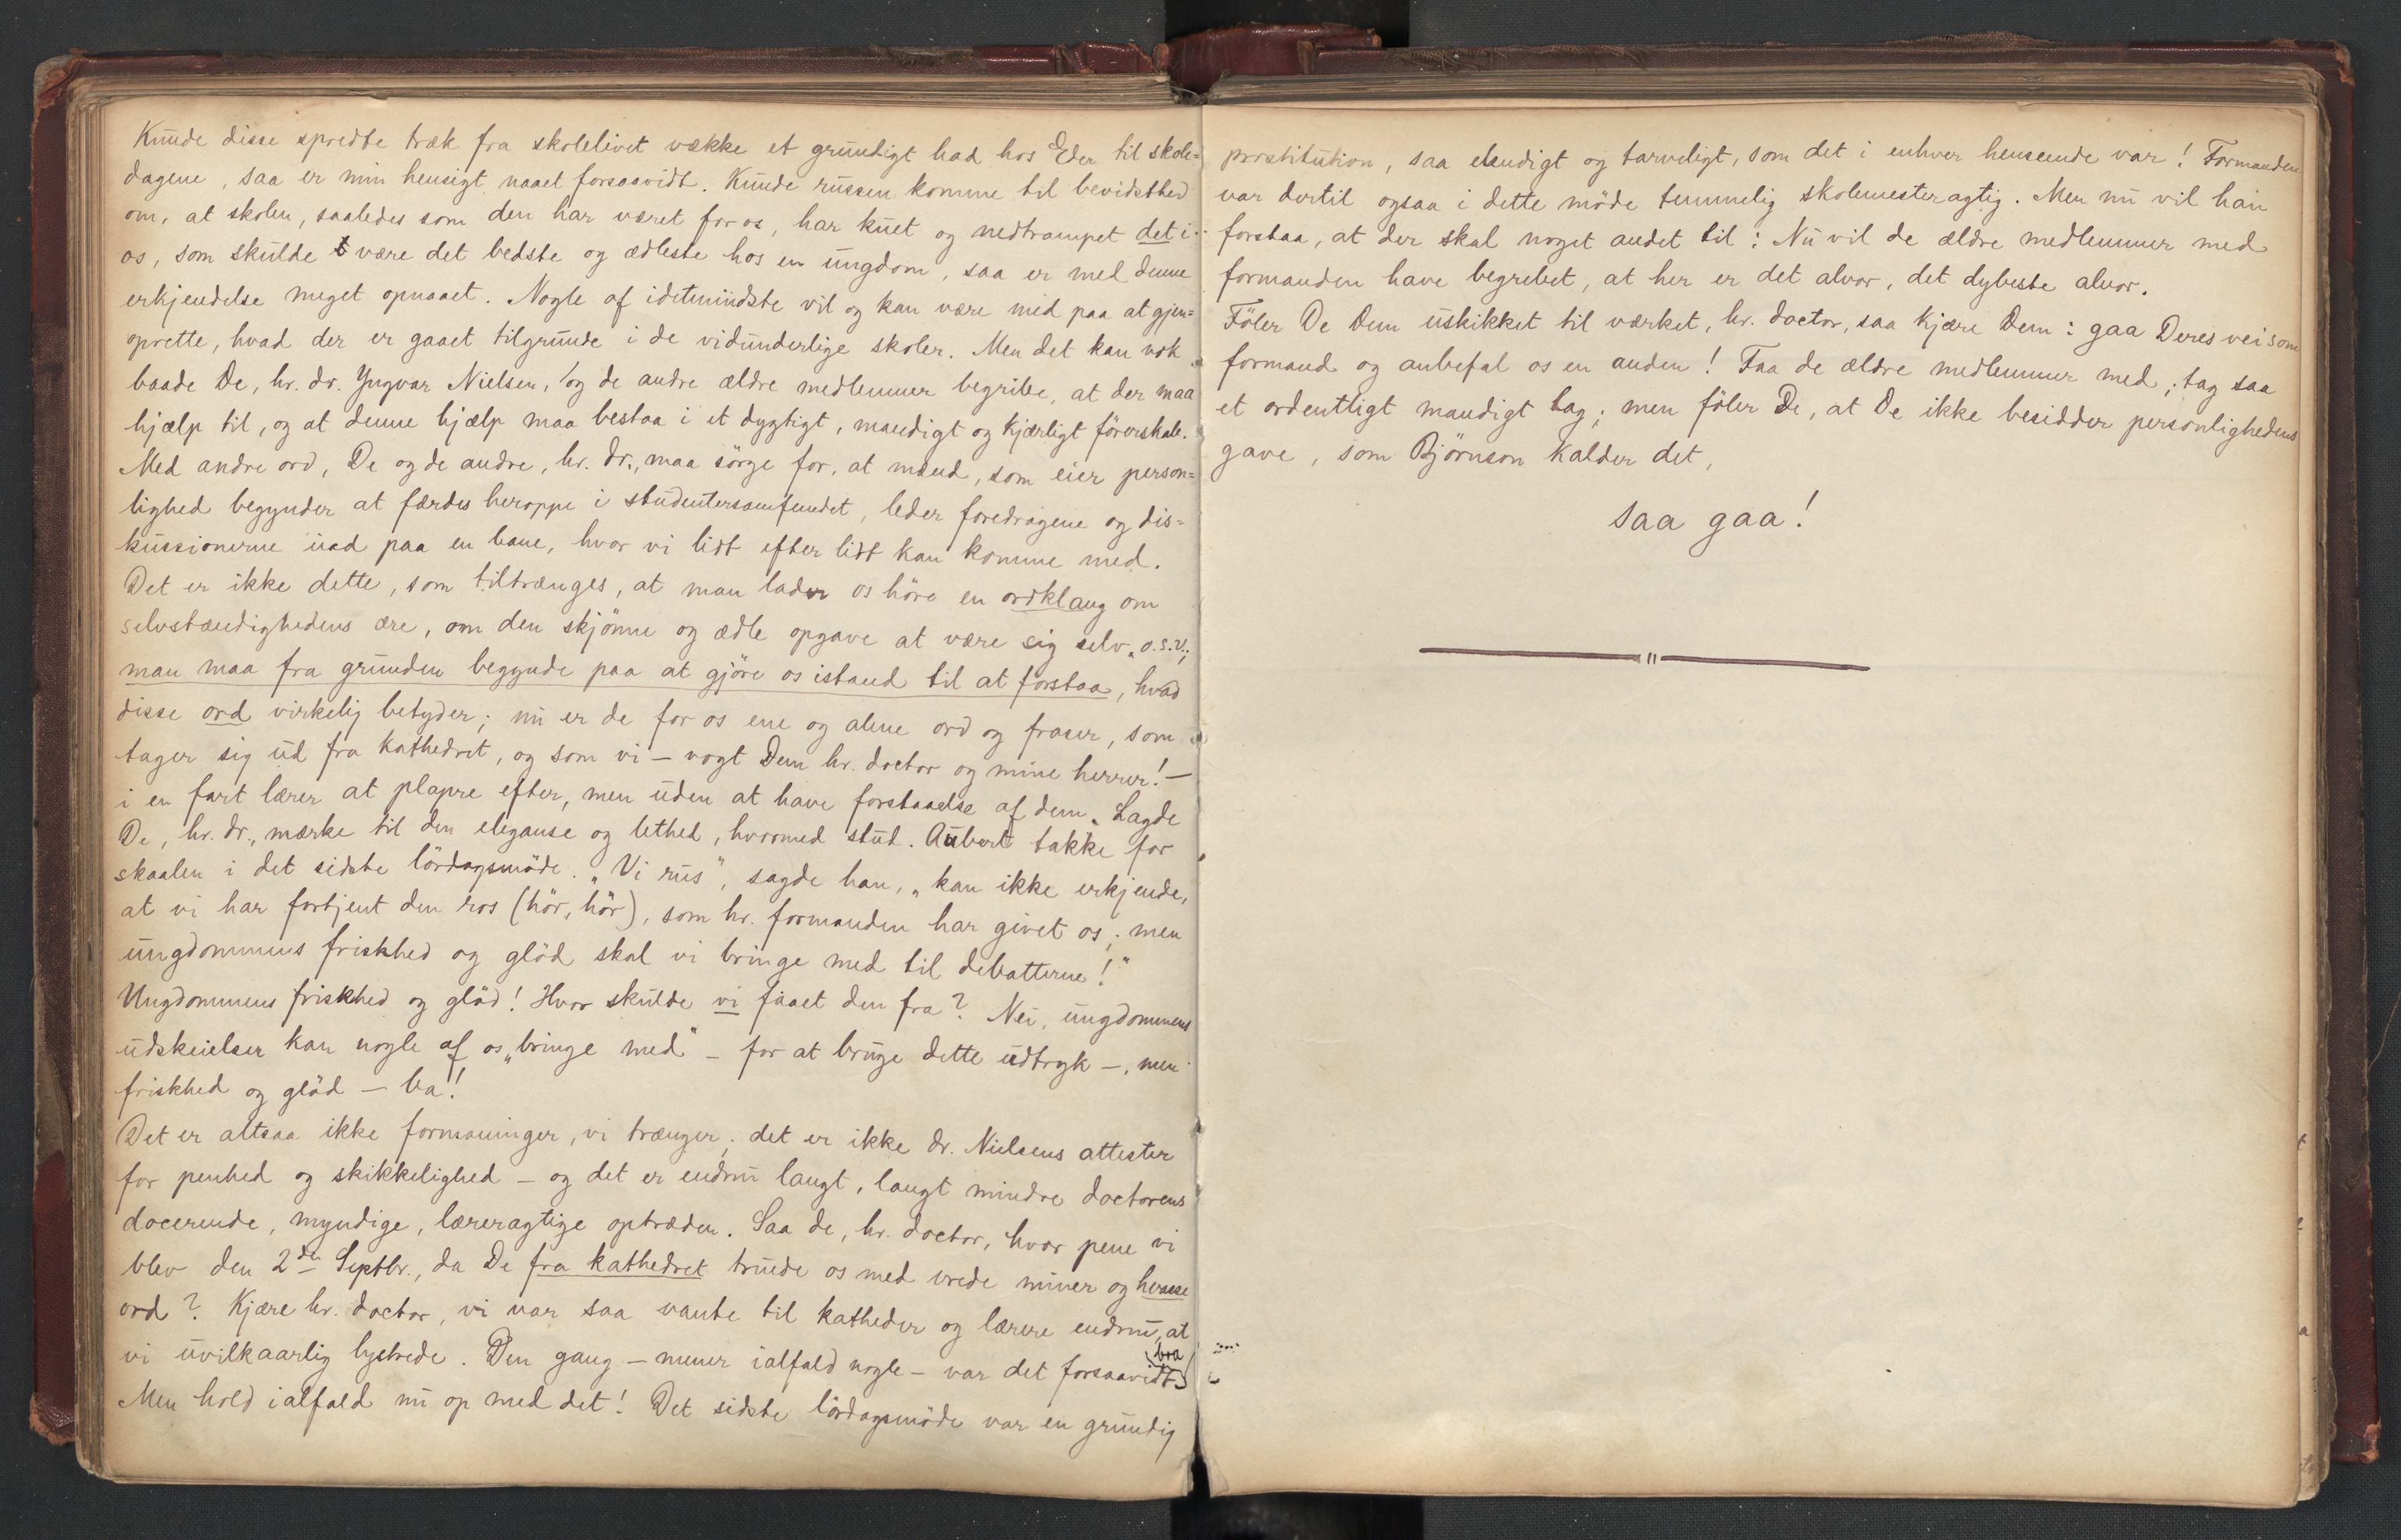 Kunde disse spredte træk fra skolelivet vække et grundigt had hos Eder til skole=
dagene, saa er min hensigt naaet forsaavidt. Kunde russen komme til bevidsthed
om, at skolen, saaledes som den har været for os, har kuet og nedtrampet det i
os, som skulde være det bedste og ædleste hos en ungdom, saa er med denne
erkjendelse meget opnaaet. Nogle af idetmindste vil og kan være med paa at gjen=
oprette, hvad der er gaaet tilgrunde i de vidunderlige skoler. Men det kan nok
baade De, hr. dr. Yngvar Nielsen, og de andre ældre medlemmer begribe, at der maa
hjælp til, og at denne hjælp maa bestaa i et dygtigt, mandigt og kjærligt förerskab.
Med andre ord, De og de andre, hr. dr., maa sörge for, at mænd, som eier person=
lighed begynder at færdes heroppe i studentersamfundet, leder foredragene og dis=
kussionerne ind paa en bane, hvor vi lidt efter lidt kan komme med.
Det er ikke dette, som tiltrænges, at man lader os höre en ordklang om
selvstændighedens ære, om den skjönne og ædle opgave at være sig selv o.s.v.;
man maa fra grunden begynde paa at gjöre os istand til at forstaa, hvad
disse ord virkelig betyder; nu er de for os ene og alene ord og fraser, som
tager sig ud fra kathedret, og som vi – vogt Dem hr. doctor og mine herrer! –
i en fart lærer at plapre efter, men uden at have forstaaelse af dem. Lagde
De, hr. dr., mærke til den eleganse og lethed, hvormed stud. Aubert takke for
skaalen i det sidste lördagsmöde. „Vi rus", sagde han, „kan ikke erkjende,
at vi har fortjent den ros (hör, hör), som hr. formanden har givet os; men
ungdommens friskhed og glöd skal vi bringe med til debatterne!"
Ungdommens friskhed og glöd! Hvor skulde vi faaet den fra? Nei, ungdommens
udskeielser kan nogle af os „bringe med" – for at bruge dette udtryk –, men
friskhed og glöd – ba!!
Det er altsaa ikke formaninger, vi trænger; det er ikke dr. Nielsens attester
for penhed og skikkelighed – og det er endnu langt, langt mindre doctorens
docerende, myndige, læreragtige optræden. Saa de, hr. doctor, hvor pene vi
blev den 2den Septbr., da De fra kathedret truede os med vrede miner og hvasse
ord? Kjære hr. doctor, vi var saa vante til katheder og lærere endnu, at
vi uvilkaarlig lystrede. Den gang – mener ialfald nogle – var det forsaavidt bra
Men hold ialfald nu op med det! Det sidste lördagsmöde var en grundig
prostitution, saa elendigt og tarveligt, som det i enhver henseende var! Formanden
var dertil ogsaa i dette möde temmelig skolemesteragtig. Men nu vil han
forstaa, at der skal noget andet til: Nu vil de ældre medlemmer med
formanden have begrebet, at her er det alvor, det dybeste alvor.
Föler De Dem uskikket til værket, hr. doctor, saa kjære Dem: gaa Deres vei som
formand og anbefal os en anden! Faa de ældre medlemmer med; tag saa
et ordentligt mandigt tag; men föler De, at De ikke besidder personlighedens
gave, som Björnson kalder det,
saa gaa!